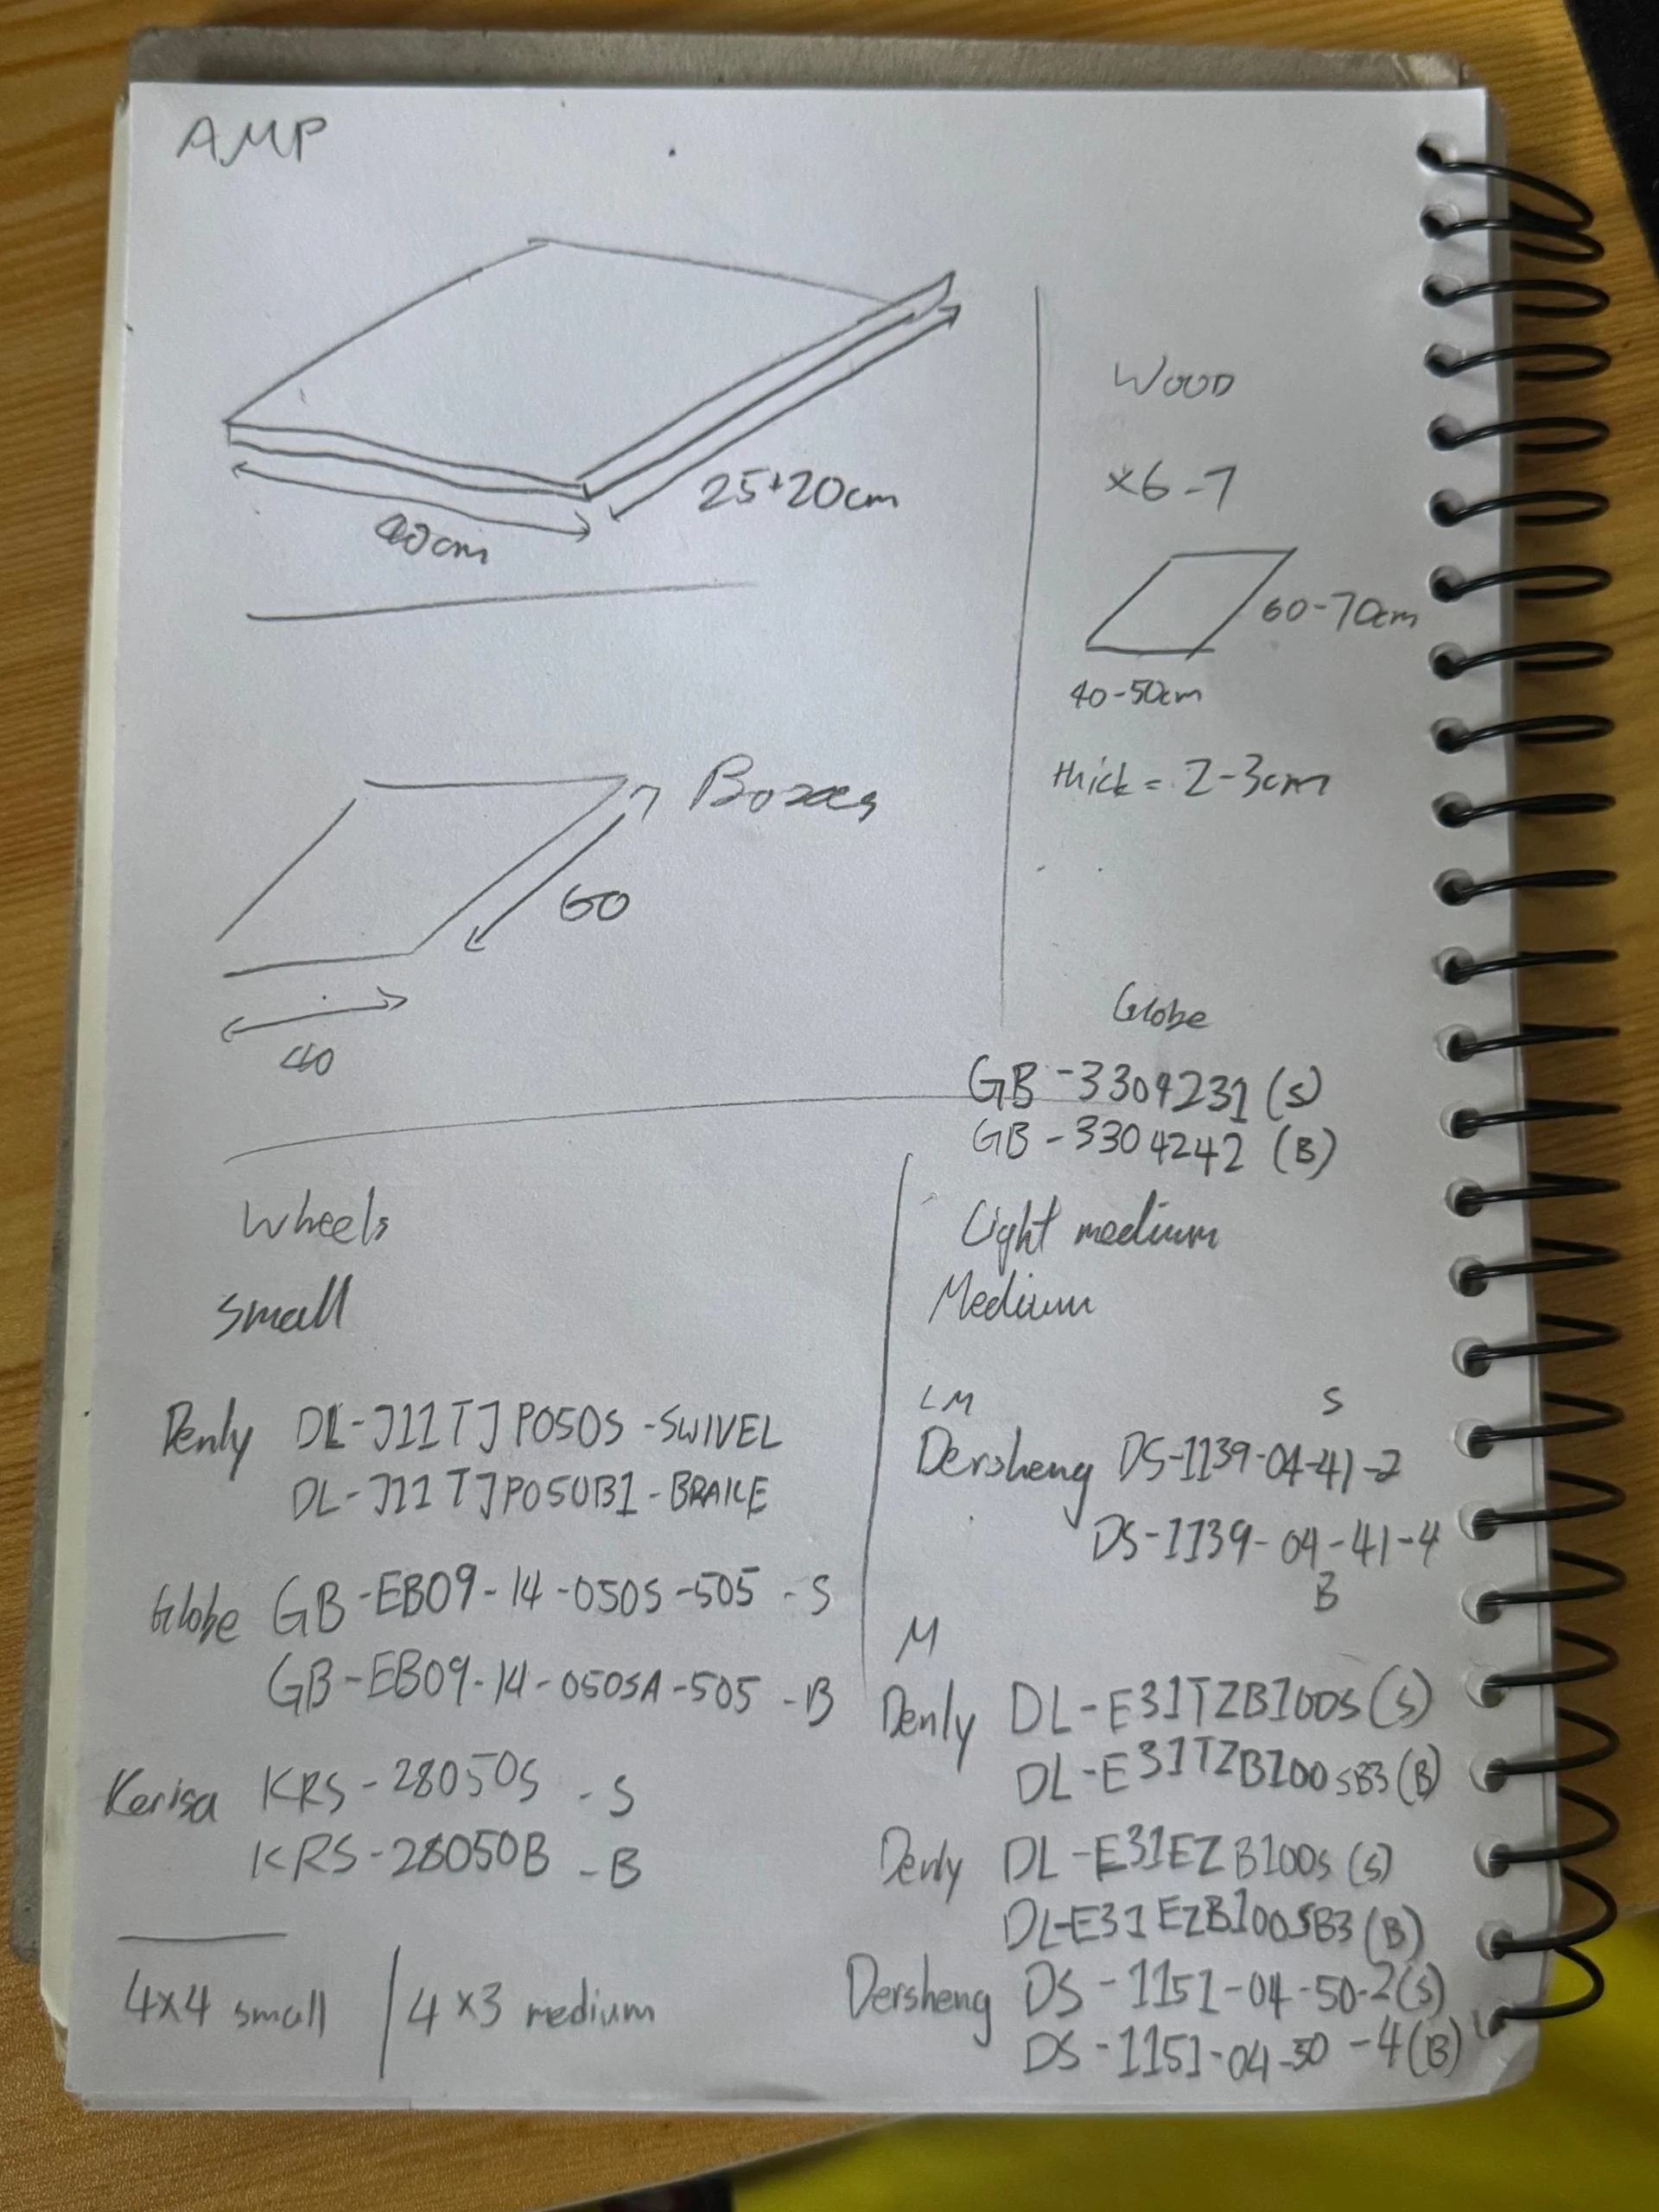 AMP
40cm
25+20cm
Wood
×6-7
60-70cm
40-50cm
thick = 2-3cm
Boxes
60
40
Globe
GB-3304231 (S)
GB-3304242 (B)
Wheels
Small
Denly DL-J11TJP050S-SWIVEL
DL-J11TJP050B1-BRAKE
Globe GB-EB09-14-050S-505 - S
GB-EB09-14-050SA-505 - B
Kerisa KRS-28050S - S
KRS-28050B - B
4x4 small / 4x3 medium
Light medium
Medium
LM S
Dersheng DS-1139-04-41-2
DS-1139-04-41-4
B
M
Denly DL-E31TZB100S (S)
DL-E31TZB100SB3 (B)
Denly DL-E31EZB100S (S)
DL-E31EZB100SB3 (B)
Dersheng DS-1151-04-50-2 (S)
DS-1151-04-50-4 (B)